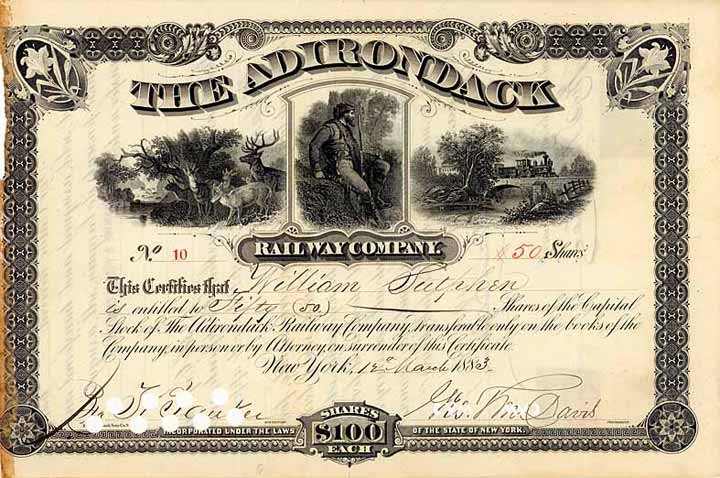 THE ADIRONDACK
RAILWAY COMPANY
No 10 50 Shares
This Certifies that William Sutphen
is entitled to Fifty (50) Shares of the Capital
Stock of The Adirondack Railway Company, transferable only on the books of the
Company, in person or by Attorney, on surrender of this Certificate.
New York, 12 March 1883.
Davis
INCORPORATED UNDER THE LAWS SHARES $100 EACH OF THE STATE OF NEW YORK.